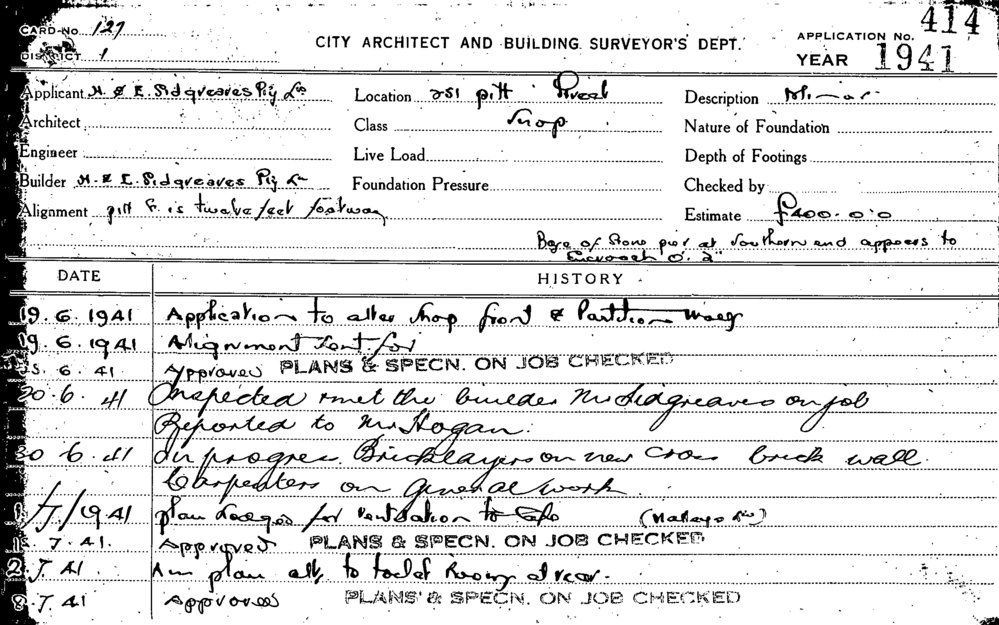 CARD No. 127
DISTRICT 1
CITY ARCHITECT AND BUILDING SURVEYOR'S DEPT.
APPLICATION No. 414
YEAR 1941
Applicant H. & E. Sidgreaves Pty Ln
Location 251 pitt Street
Description Minor
Architect
Class Shop
Nature of Foundation
Engineer
Live Load
Depth of Footings
Builder H. & E. Sidgreaves Pty Ln
Foundation Pressure
Checked by
Alignment pitt St. is twelve feet footway
Estimate £400.0.0
Base of stone pier at Southern end appears to
Encroach 0. 2"
DATE
HISTORY
19. 6. 1941 Application to alter shop front & Partition
19. 6. 1941 Alignment sent for
6. 41 Approved PLANS & SPECN. ON JOB CHECKED
20. 6. 41 Inspected & met the builder Mr Sidgreaves on job
Reported to Mr Hogan.
30 6. 41 In progress. Bricklayers on new cross brick wall.
Carpenters on general work
1/7/1941 plan lodged for ventilation to Cafe
7. 41. Approved PLANS & SPECN. ON JOB CHECKED
2. 7. 41 plan to toilet at rear.
8. 7. 41 Approved PLANS & SPECN. ON JOB CHECKED